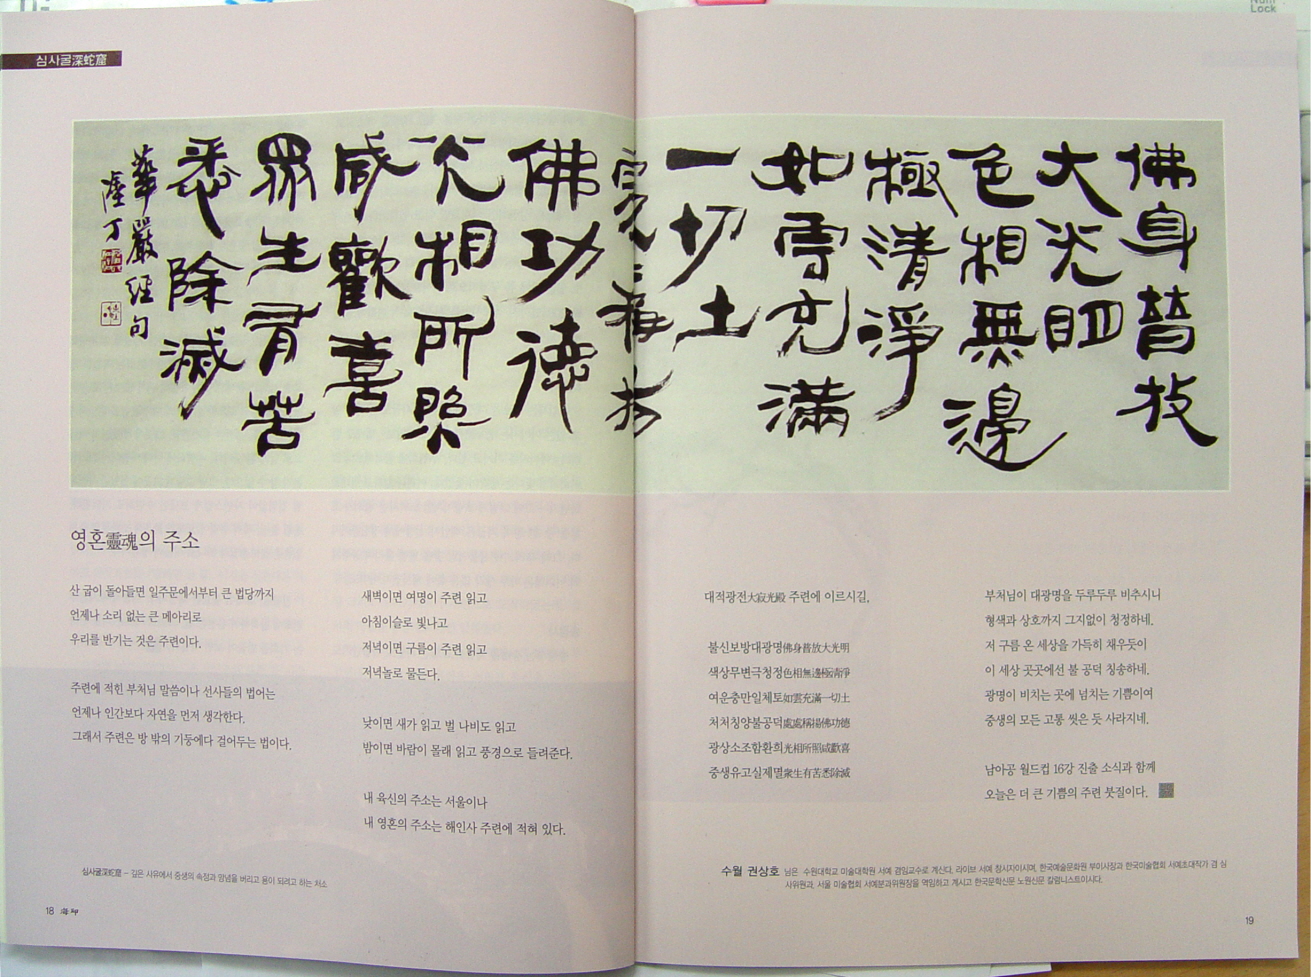 심사굴深蛇窟
佛身普放
大光明
色相無邊
極清淨
如雲充滿
一切土
處處稱揚
佛功德
光相所照
咸歡喜
眾生有苦
悉除滅
華嚴經句
영혼靈魂의 주소
산 굽이 돌아들면 일주문에서부터 큰 법당까지
언제나 소리 없는 큰 메아리로
우리를 반기는 것은 주련이다.
주련에 적힌 부처님 말씀이나 선사들의 법어는
언제나 인간보다 자연을 먼저 생각한다.
그래서 주련은 방 밖의 기둥에다 걸어두는 법이다.
새벽이면 여명이 주련 읽고
아침이슬로 빛나고
저녁이면 구름이 주련 읽고
저녁놀로 물든다.
낮이면 새가 읽고 벌 나비도 읽고
밤이면 바람이 몰래 읽고 풍경으로 들려준다.
내 육신의 주소는 서울이나
내 영혼의 주소는 해인사 주련에 적혀 있다.
심사굴深蛇窟 - 깊은 사유에서 중생의 속정과 망념을 버리고 용이 되려고 하는 처소
18 海印
대적광전大寂光殿 주련에 이르시길,
불신보방대광명佛身普放大光明
색상무변극청정色相無邊極淸淨
여운충만일체토如雲充滿一切土
처처칭양불공덕處處稱揚佛功德
광상소조함환희光相所照咸歡喜
중생유고실제멸衆生有苦悉除滅
부처님이 대광명을 두루두루 비추시니
형색과 상호까지 그지없이 청정하네.
저 구름 온 세상을 가득히 채우듯이
이 세상 곳곳에선 불 공덕 칭송하네.
광명이 비치는 곳에 넘치는 기쁨이여
중생의 모든 고통 씻은 듯 사라지네.
남아공 월드컵 16강 진출 소식과 함께
오늘은 더 큰 기쁨의 주련 붓질이다.
수월 권상호 님은 수원대학교 미술대학원 서예 겸임교수로 계신다. 라이브 서예 창시자이시며, 한국예술문화원 부이사장과 한국미술협회 서예초대작가 겸 심
사위원과, 서울 미술협회 서예분과위원장을 역임하고 계시고 한국문학신문 노원신문 칼럼니스트이시다.
19
Num
Lock